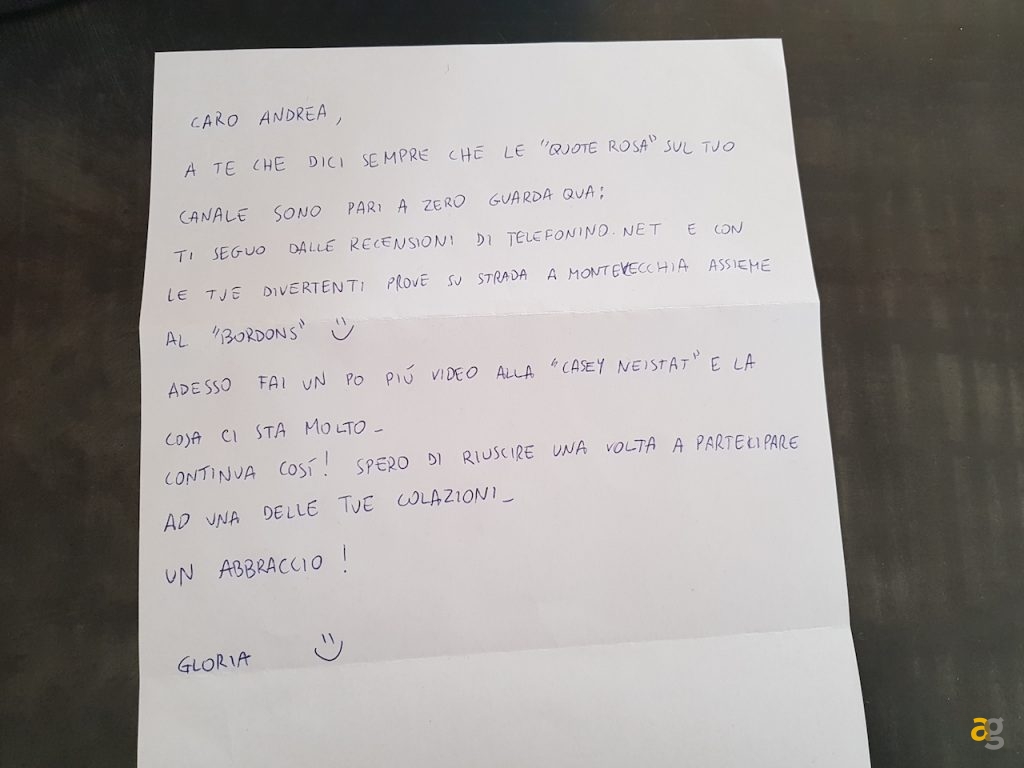 CARO ANDREA,
A TE CHE DICI SEMPRE CHE LE "QUOTE ROSA" SUL TUO
CANALE SONO PARI A ZERO GUARDA QUA:
TI SEGUO DALLE RECENSIONI DI TELEFONINO.NET E CON
LE TUE DIVERTENTI PROVE SU STRADA A MONTEVECCHIA ASSIEME
AL "BORDONS"
ADESSO FAI UN PO PIÚ VIDEO ALLA "CASEY NEISTAT" E LA
COSA CI STA MOLTO_
CONTINUA COSÍ! SPERO DI RIUSCIRE UNA VOLTA A PARTECIPARE
AD UNA DELLE TUE COLAZIONI_
UN ABBRACCIO!
GLORIA
ag